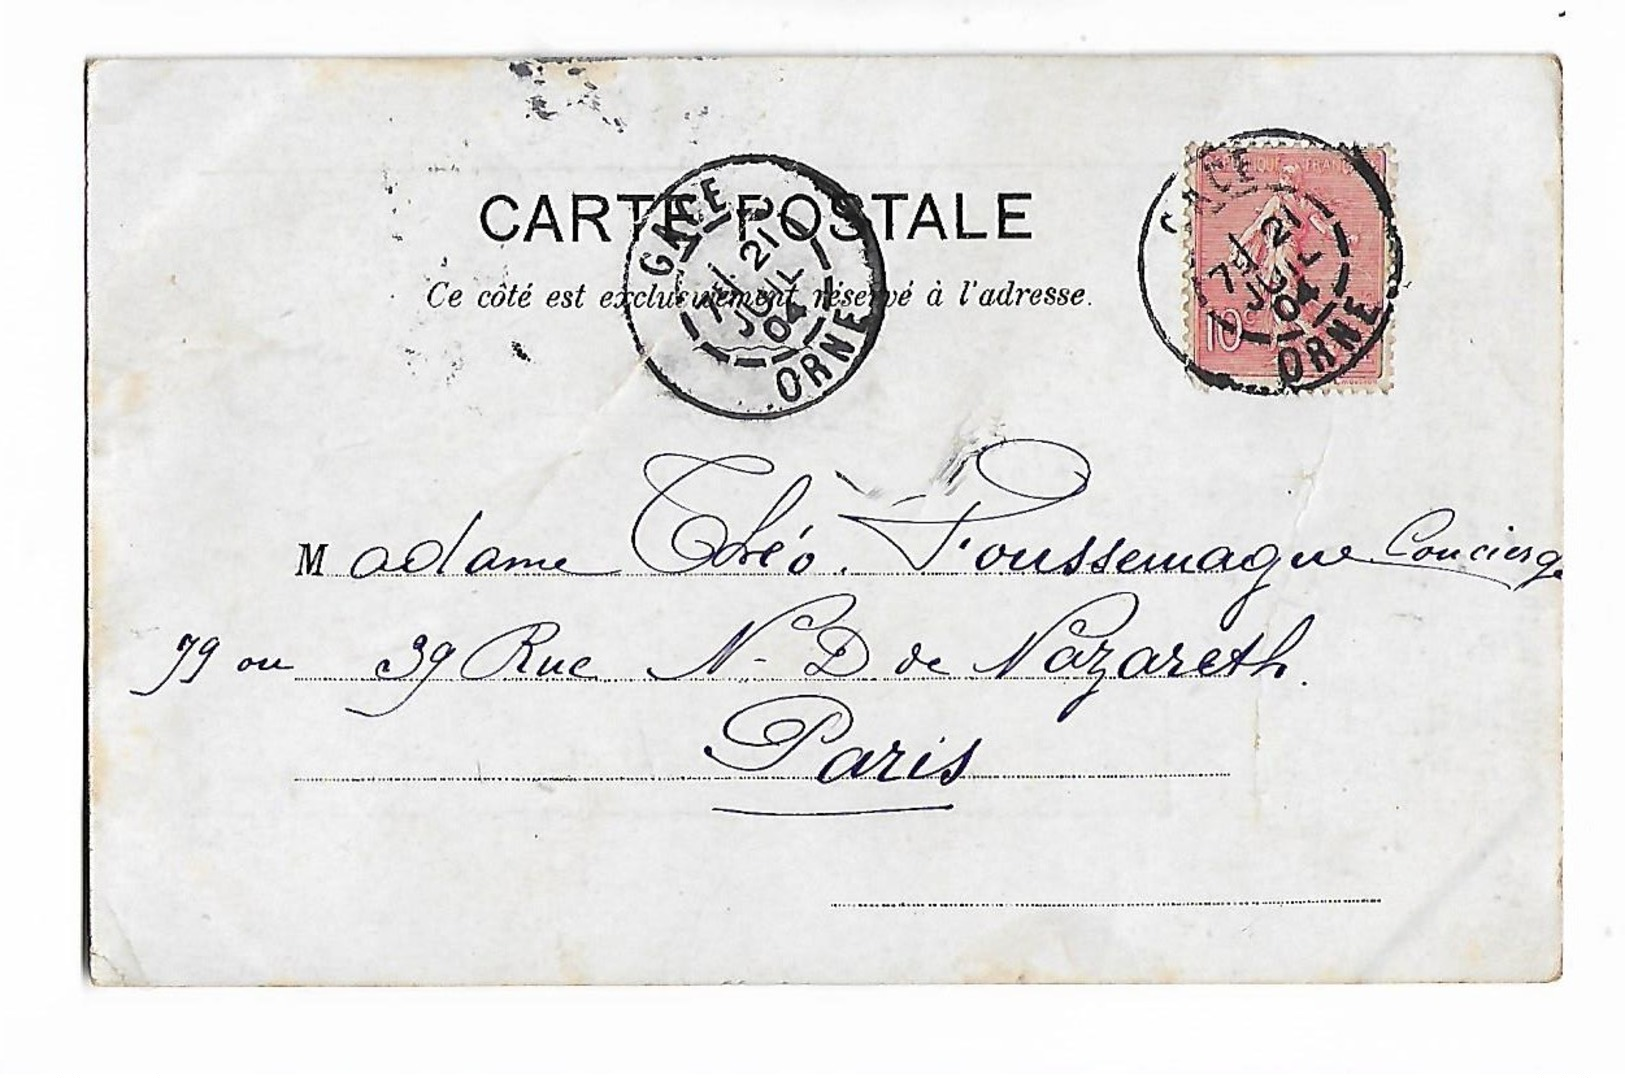 CARTE POSTALE
Ce côté est exclusivement réservé à l'adresse.
GACE
7E 21
JUIL
04
ORNE
GACE
7E 21
JUIL
04
ORNE
10c
Madame Théo. Poussemague Concierge
79 ou 39 Rue N-D de Nazareth.
Paris